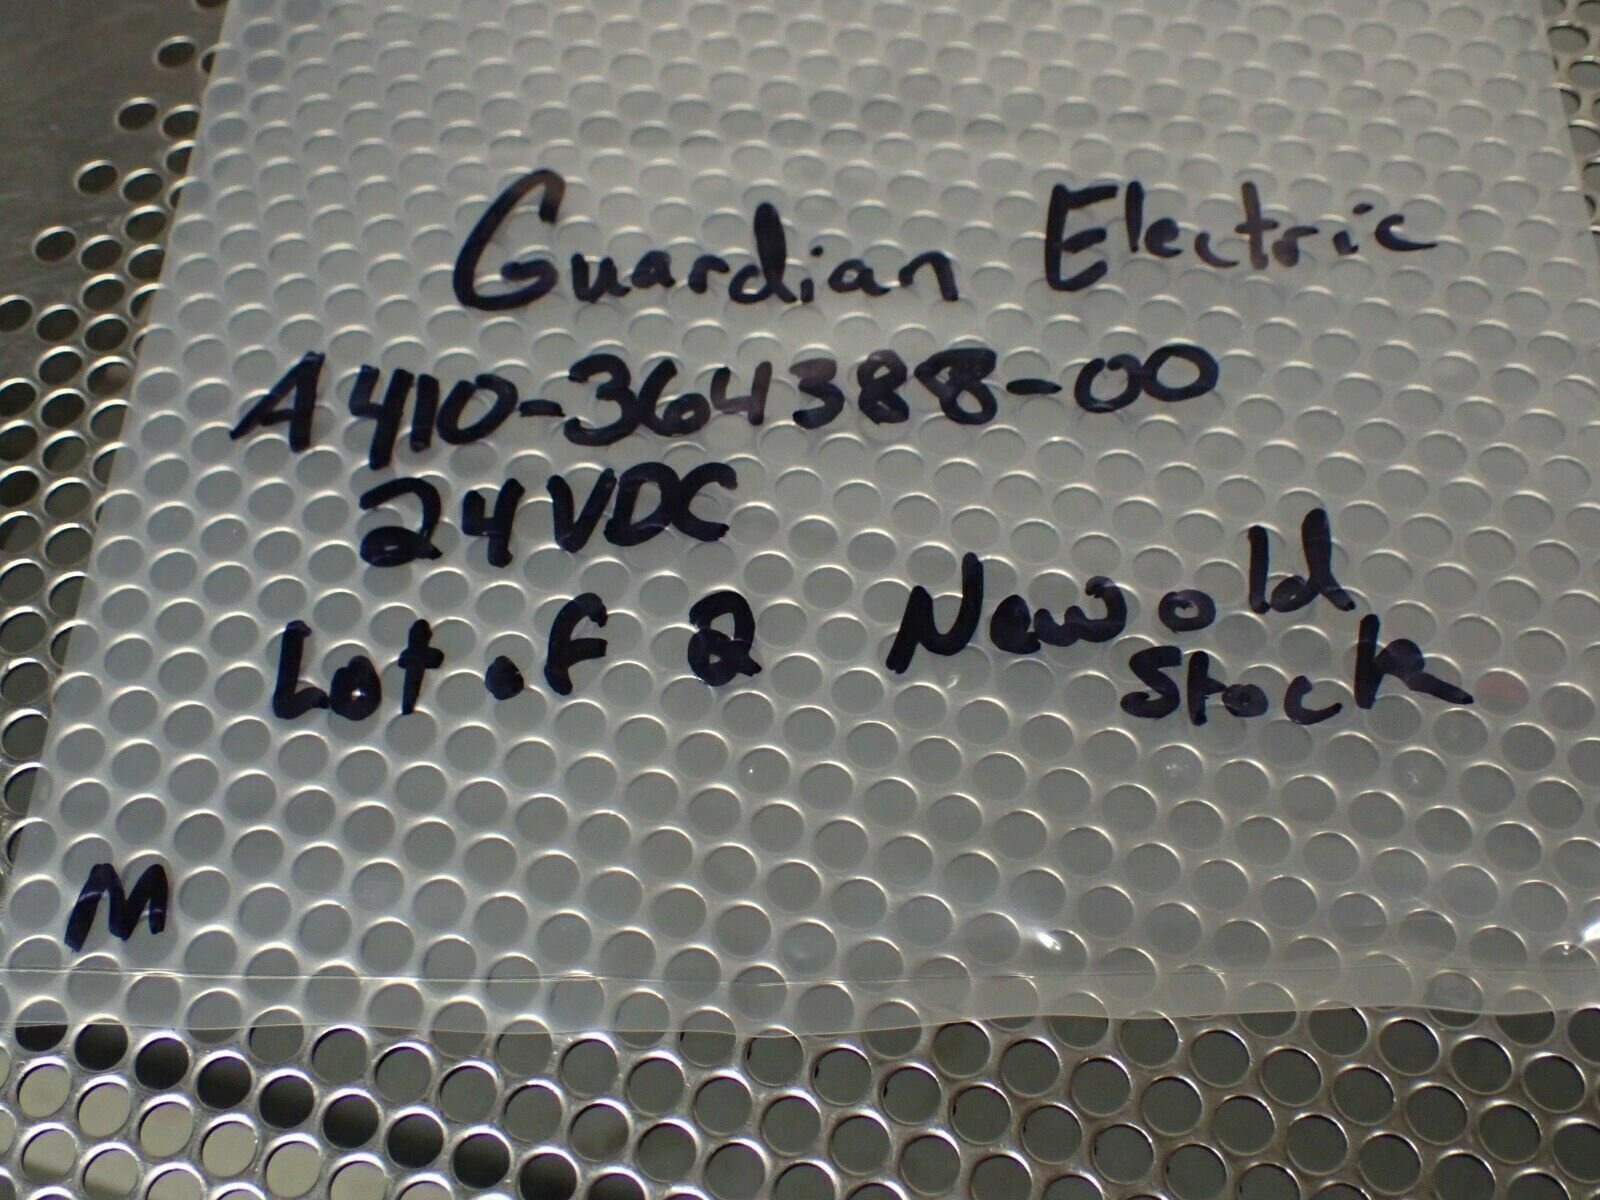 Guardian Electric
A410-364388-00
24VDC
Lot of 2 New old
Stock
M